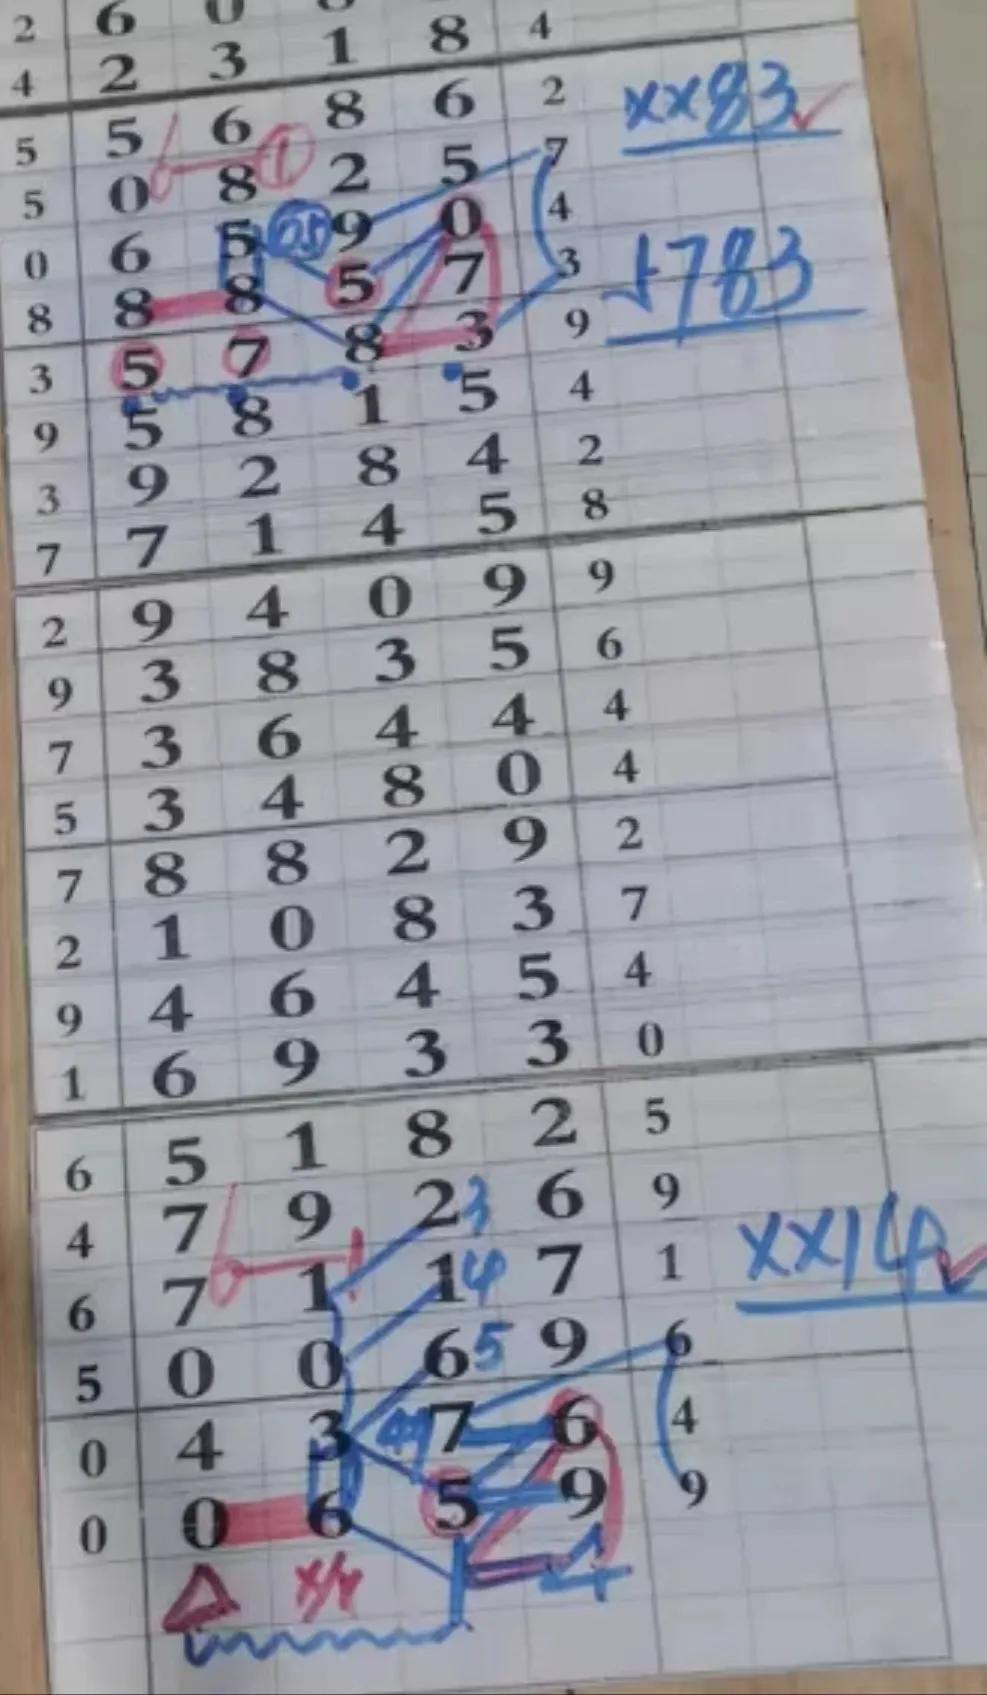 2 6 0 8
4 2 3 1 8 4
5 5 6 8 6 2 xx83
5 0 8 1 2 5 7
0 6 5 9 0 4
8 8 8 5 7 3 1783
3 5 7 8 3 9
9 5 8 1 5 4
3 9 2 8 4 2
7 7 1 4 5 8
2 9 4 0 9 9
9 3 8 3 5 6
7 3 6 4 4 4
5 3 4 8 0 4
7 8 8 2 9 2
2 1 0 8 3 7
9 4 6 4 5 4
1 6 9 3 3 0
6 5 1 8 2 5
4 7 9 2 3 6 9
6 7 1 1 4 7 1 xx14
5 0 0 6 5 9 6
0 4 3 7 6 4
0 0 6 5 9 9
x/x 1 4